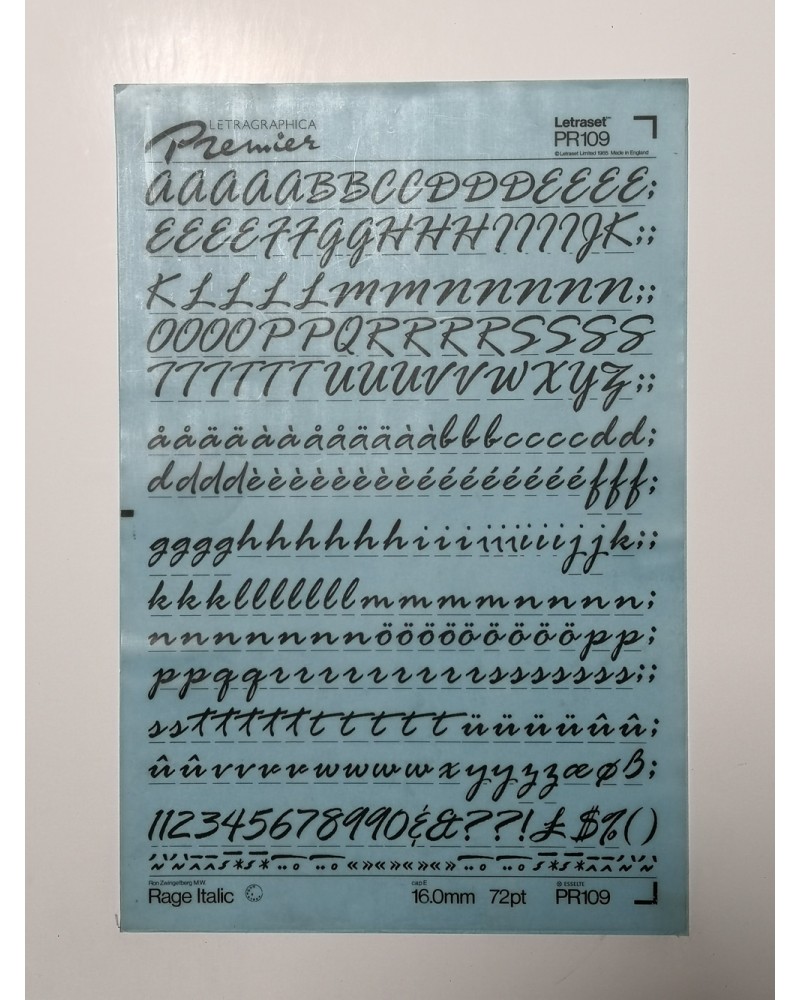 LETRAGRAPHICA
Premier
Letraset™
PR109
© Letraset Limited 1985 Made in England
AAAAABBCCDDDEEEE;
EEEEFFGGHHHIIIIJK;;
KLLLLMMNNNNNN;;
OOOOPPQRRRRSSSS
TTTTTTUUUVVWXYZ;;
ååääààååääààbbbccccdd;
ddddèèèèèèèèééééééééfff;
gggghhhhhhhiiiiiiiiijjk;;
kkkllllllllmmmmmnnnn;
nnnnnnnnööööööööööpp;
ppqqrrrrrrrrrrsssssss;;
ssttttttttttüüüüüûû;
ûûvvrrwwwwwxyyzzæøß;
112345678990¢&??!£$%()
Ron Zwingelberg M.W.
Rage Italic
cap E
16.0mm 72pt
© ESSELTE
PR109